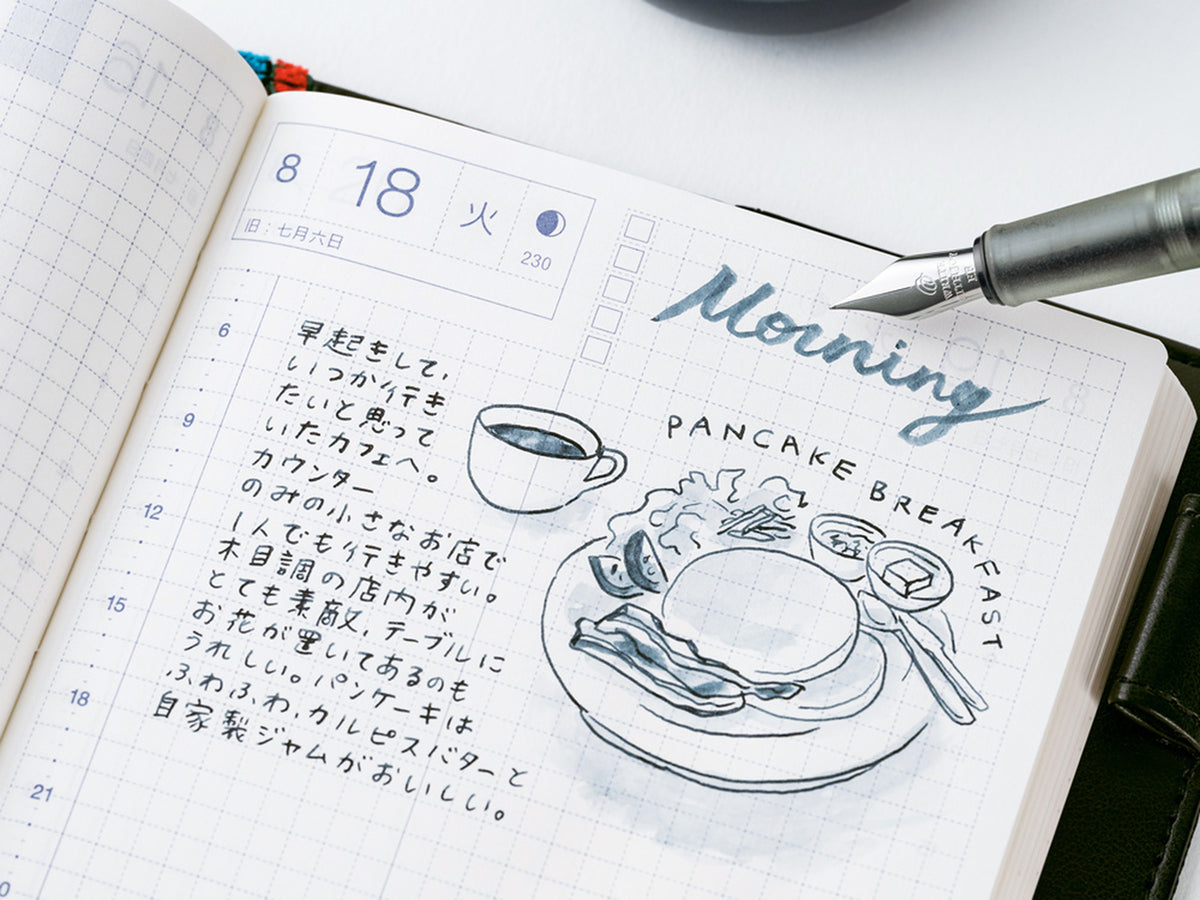 8 18 火
旧：七月六日 230
Morning
PANCAKE BREAKFAST
6
9
12
15
18
21
早起きして、
いつか行き
たいと思って
いたカフェへ。
カウンター
のみの小さなお店で
1人でも行きやすい。
木目調の店内が
とても素敵、テーブルに
お花が置いてあるのも
うれしい。パンケーキは
ふわふわ、カルピスバターと
自家製ジャムがおいしい。